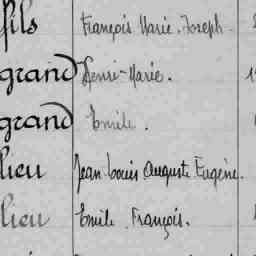 fils François Marie Joseph
grand Henri-Marie.
grand Emile.
lieu Jean Louis Auguste Eugène.
lieu Emile François.